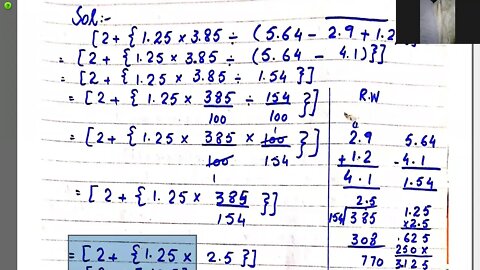 Sol:-
[2+ {1.25 × 3.85 ÷ (5.64 − 2.9 + 1.2
= [2+ {1.25 × 3.85 ÷ (5.64 − 4.1)}]
= [2+ {1.25 × 3.85 ÷ 1.54}]
= [2+ {1.25 × 385/100 ÷ 154/100}]
= [2+ {1.25 × 385/100 × 100/154}]
1
1
= [2+ {1.25 × 385/154}]
= [2+ {1.25 × 2.5}]
R.W
2.9
+1.2
4.1
5.64
-4.1
1.54
2.5
154 385
308
770
1.25
×2.5
625
250×
3125